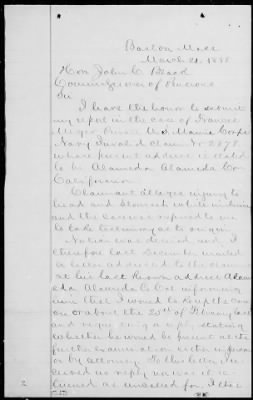 Boston Mass
March 21, 1888
Hon John C. Black
Commissioner of Pensions
Sir
I have the honor to submit
my report in the case of Francis
Meyer U.S. Marine Corps
Navy Invalid Claim No 2878
whose present address is stated
to be Alameda Alameda Co
California.
Claimant alleges injury to
head and stomach while in
and the case was referred to me
to take testimony as to origin
Notice was and I
therefore last December mailed
a letter addressed to the claimant
at his last known address Alame
da Alameda Co Cal informing
him that I would take up the case
on or about the 20th of February last
and requesting a reply stating
whether he would be present at the
further examination either in person
or by attorney. To this letter I re
ceived no reply nor was it re
turned as uncalled for. I then